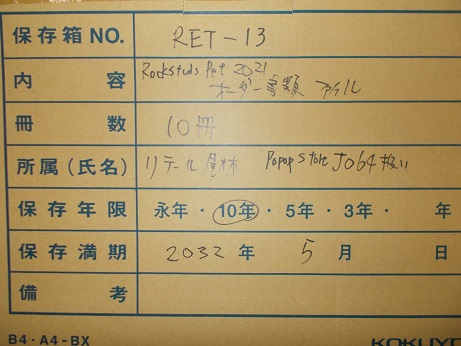 保存箱NO. RET-13
内容 Rockstuds Pet 2021
オーダー書類 ファイル
冊数 10冊
所属(氏名) リテール 尾林 Popop Store Job4扱い
保存年限 永年・10年・5年・3年・ 年
保存満期 2032年 5月 日
備考
B4・A4-BX KOKUYO